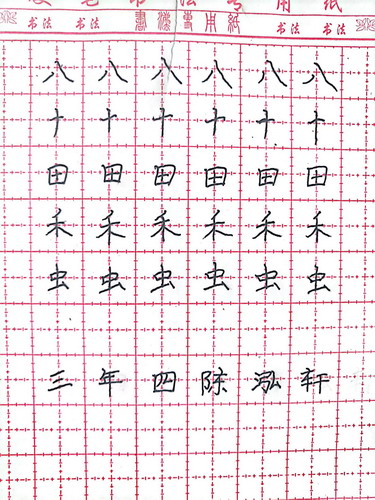 硬笔书法专用纸
书法 書法專用紙 书法
八八八八八八
十十十十十十
田田田田田田
禾禾禾禾禾禾
虫虫虫虫虫虫
三年四陈泓轩